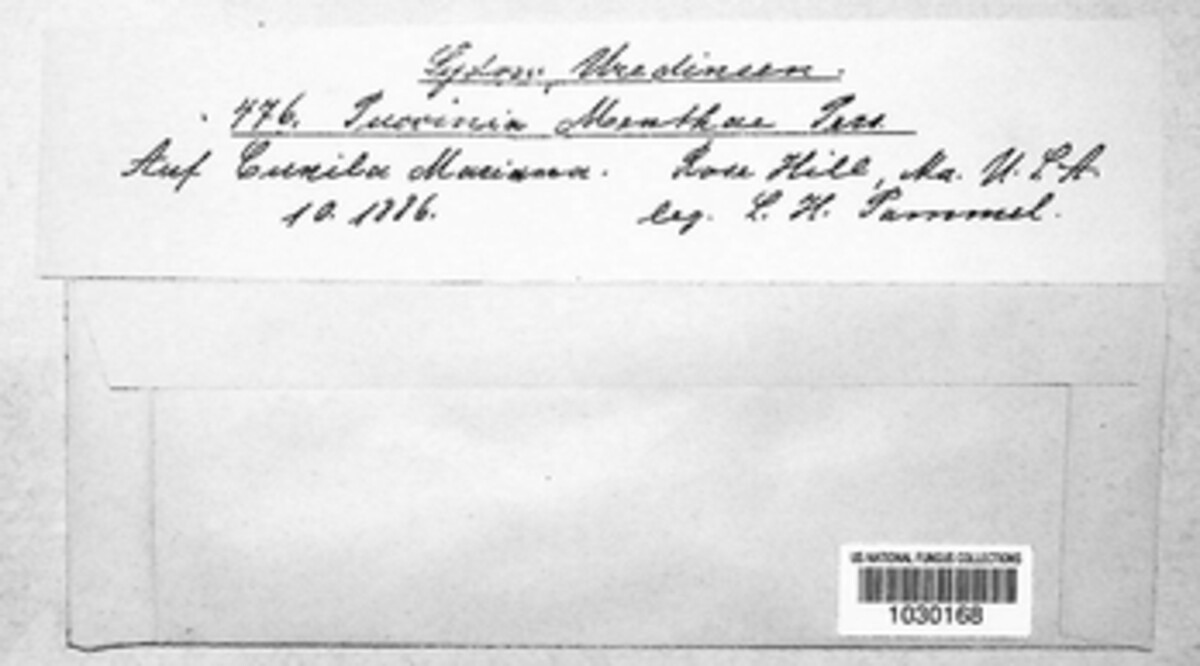 Sydow, Uredineen.
476. Puccinia Menthae Pers.
Auf Cunila Mariana. Rose Hill, Ma. U.S.A.
10. 1886. leg. L. H. Pammel.
US NATIONAL FUNGUS COLLECTIONS
1030168